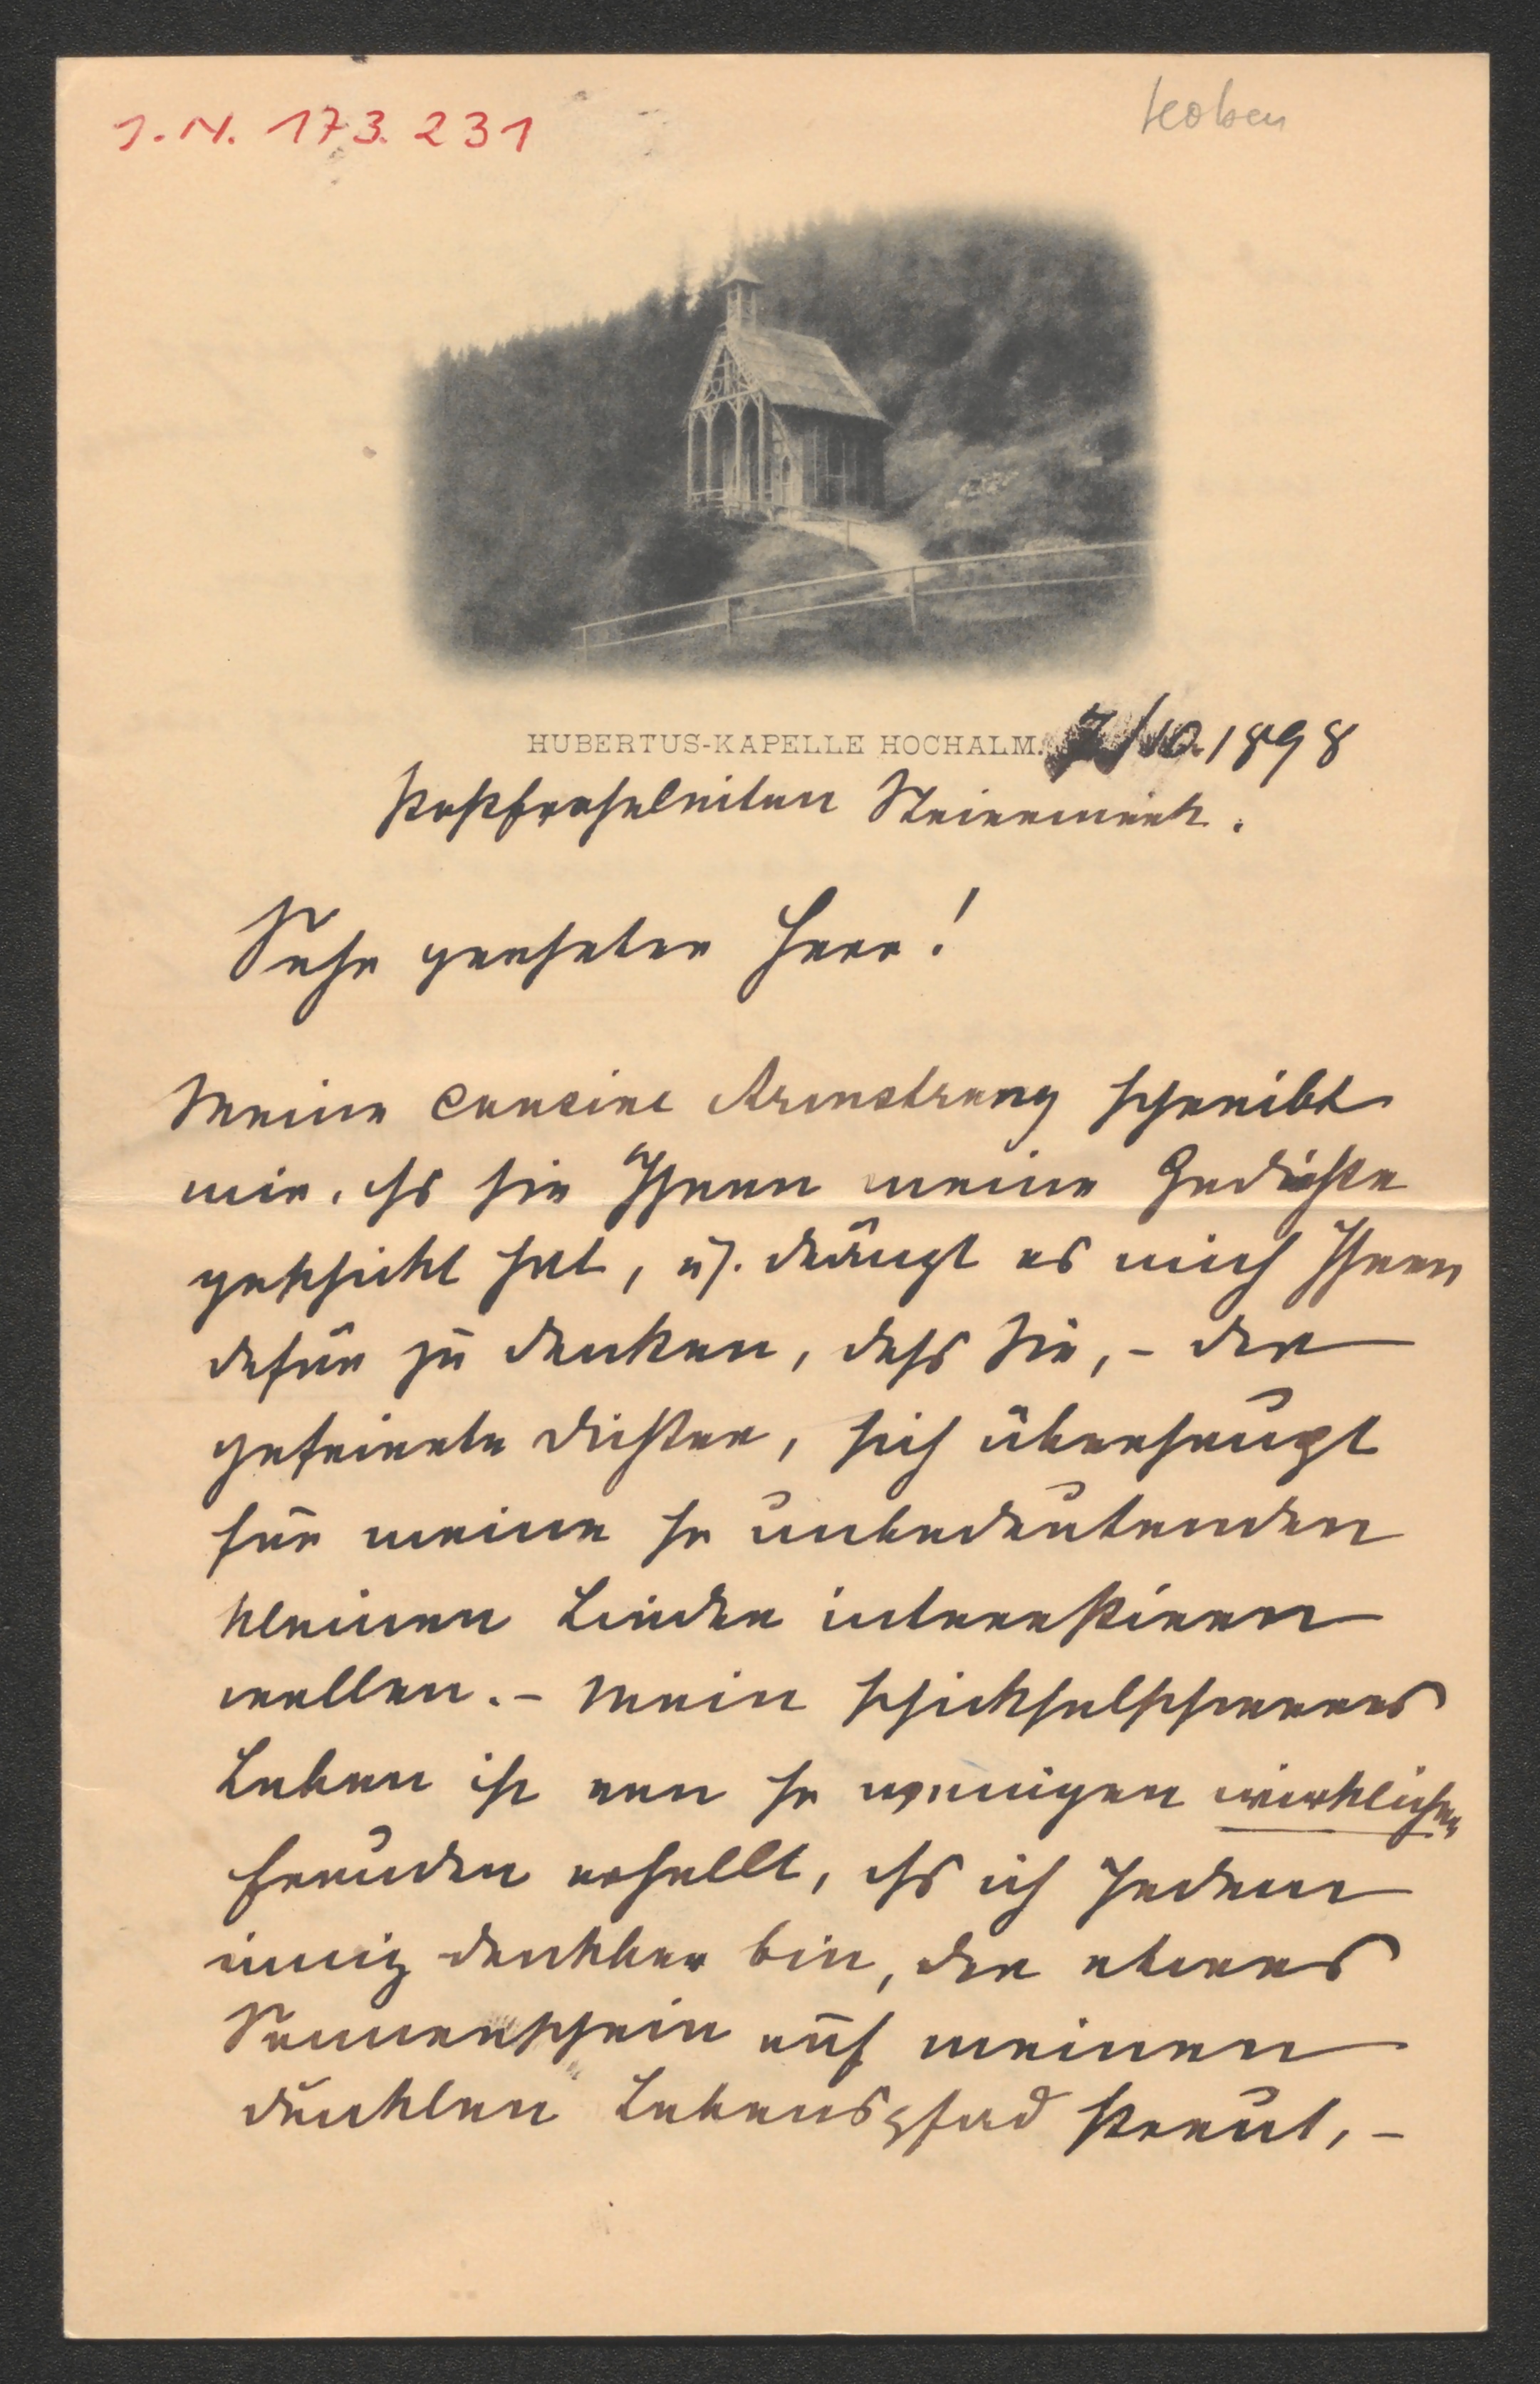 J.N. 173.231
Koben
HUBERTUS-KAPELLE HOCHALM. 7/10. 1898
Steiermark.
Sehr geehrter Herr!
Meine Cousine Armstrong schreibt
mir, dß sie Ihnen meine Gedichte
geschickt hat, u. drängt es mich Ihnen
dafür zu danken, daß Sie, - der
gefeierte Dichter, sich überhaupt
für meine so unbedeutenden
kleinen Lieder interessieren
wollen. - Mein schicksalschweres
Leben ist von so wenigen wirklichen
Freuden erhellt, dß ich Jedem
innig dankbar bin, der etwas
Sonnenschein auf meinen
dunklen Lebenspfad streut, -